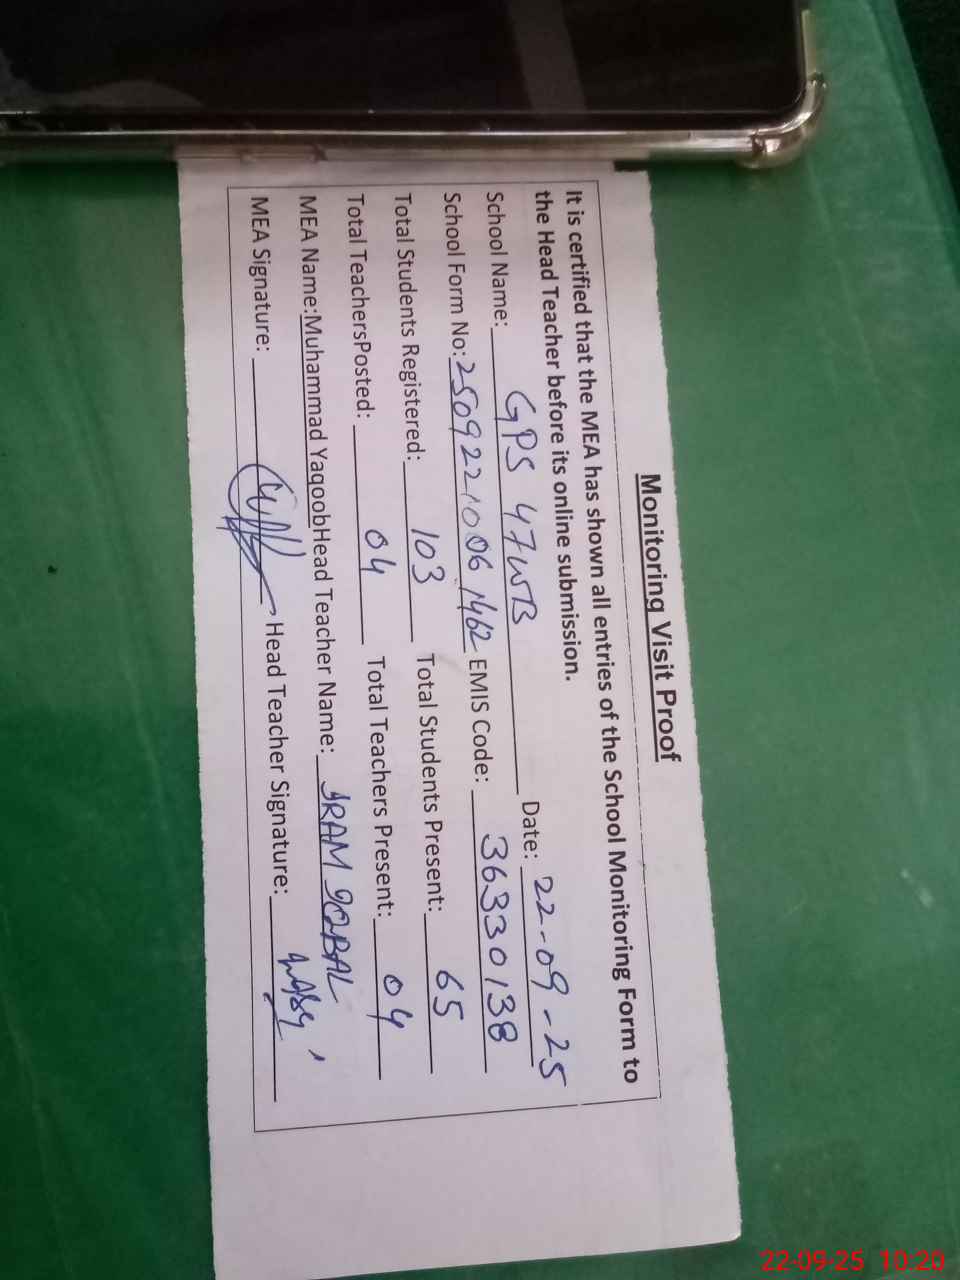 Monitoring Visit Proof
It is certified that the MEA has shown all entries of the School Monitoring Form to
the Head Teacher before its online submission.
School Name: GPS 47WB Date: 22-09-25
School Form No: 25092210061462 EMIS Code: 36330138
Total Students Registered: 103 Total Students Present: 65
Total TeachersPosted: 04 Total Teachers Present: 04
MEA Name:Muhammad YaqoobHead Teacher Name: IRAM IQBAL
MEA Signature: Head Teacher Signature:
22-09-25 10:20